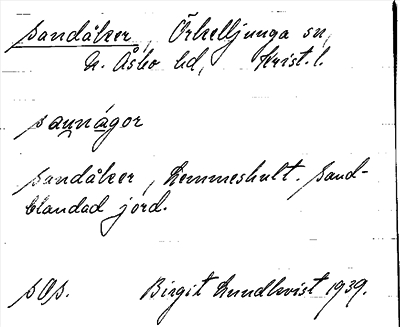 Sandåker, Örkelljunga sn,
N. Åsbo hd, Krist. l.
sannágor
Sandåker, Lemmeshult. Sand-
blandad jord.
sOp. Birgit Lundkvist 1939.